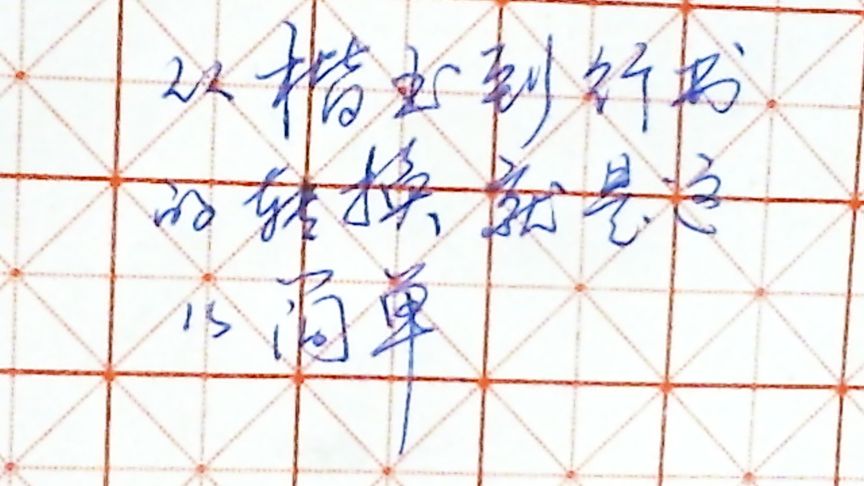 从楷书到行书
的转换就是这
么简单